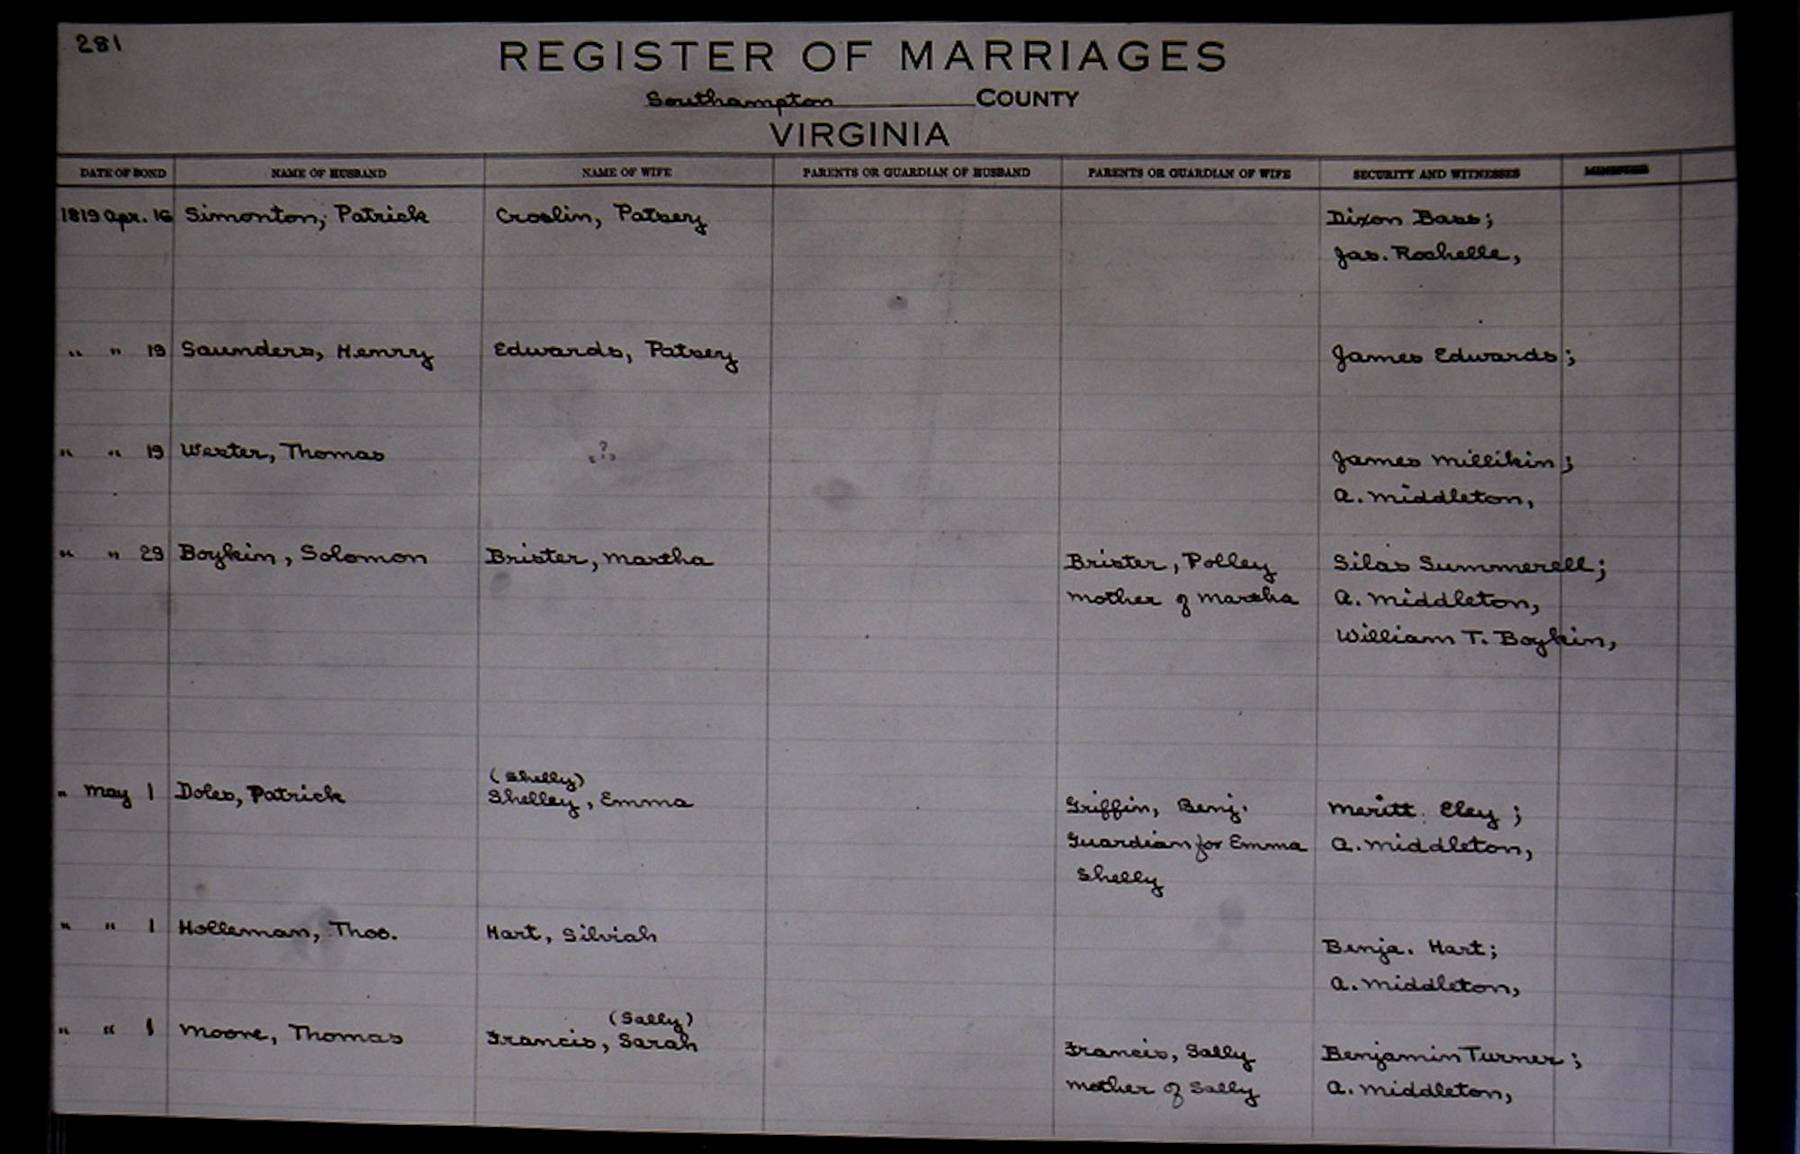 281
REGISTER OF MARRIAGES
Southampton COUNTY
VIRGINIA
DATE OF BOND NAME OF HUSBAND NAME OF WIFE PARENTS OR GUARDIAN OF HUSBAND PARENTS OR GUARDIAN OF WIFE SECURITY AND WITNESSES
1819 Apr. 16 Simonton, Patrick Croslin, Patsey Dixon Bass;
Jas. Rochelle,
" " 19 Saunders, Henry Edwards, Patsey James Edwards;
" " 19 Wester, Thomas "?" James Millikin;
A. Middleton,
" " 29 Boykin, Solomon Brister, Martha Brister, Polley Silas Summerell;
mother of Martha A. Middleton,
William T. Boykin,
(Shelly)
" May 1 Doles, Patrick Shelley, Emma Griffin, Benj. Meritt Eley;
Guardian for Emma A. Middleton,
Shelly
" " 1 Holleman, Thos. Hart, Silviah Benja. Hart;
A. Middleton,
(Sally)
" " 1 Moore, Thomas Francis, Sarah Francis, Sally Benjamin Turner;
mother of Sally A. Middleton,